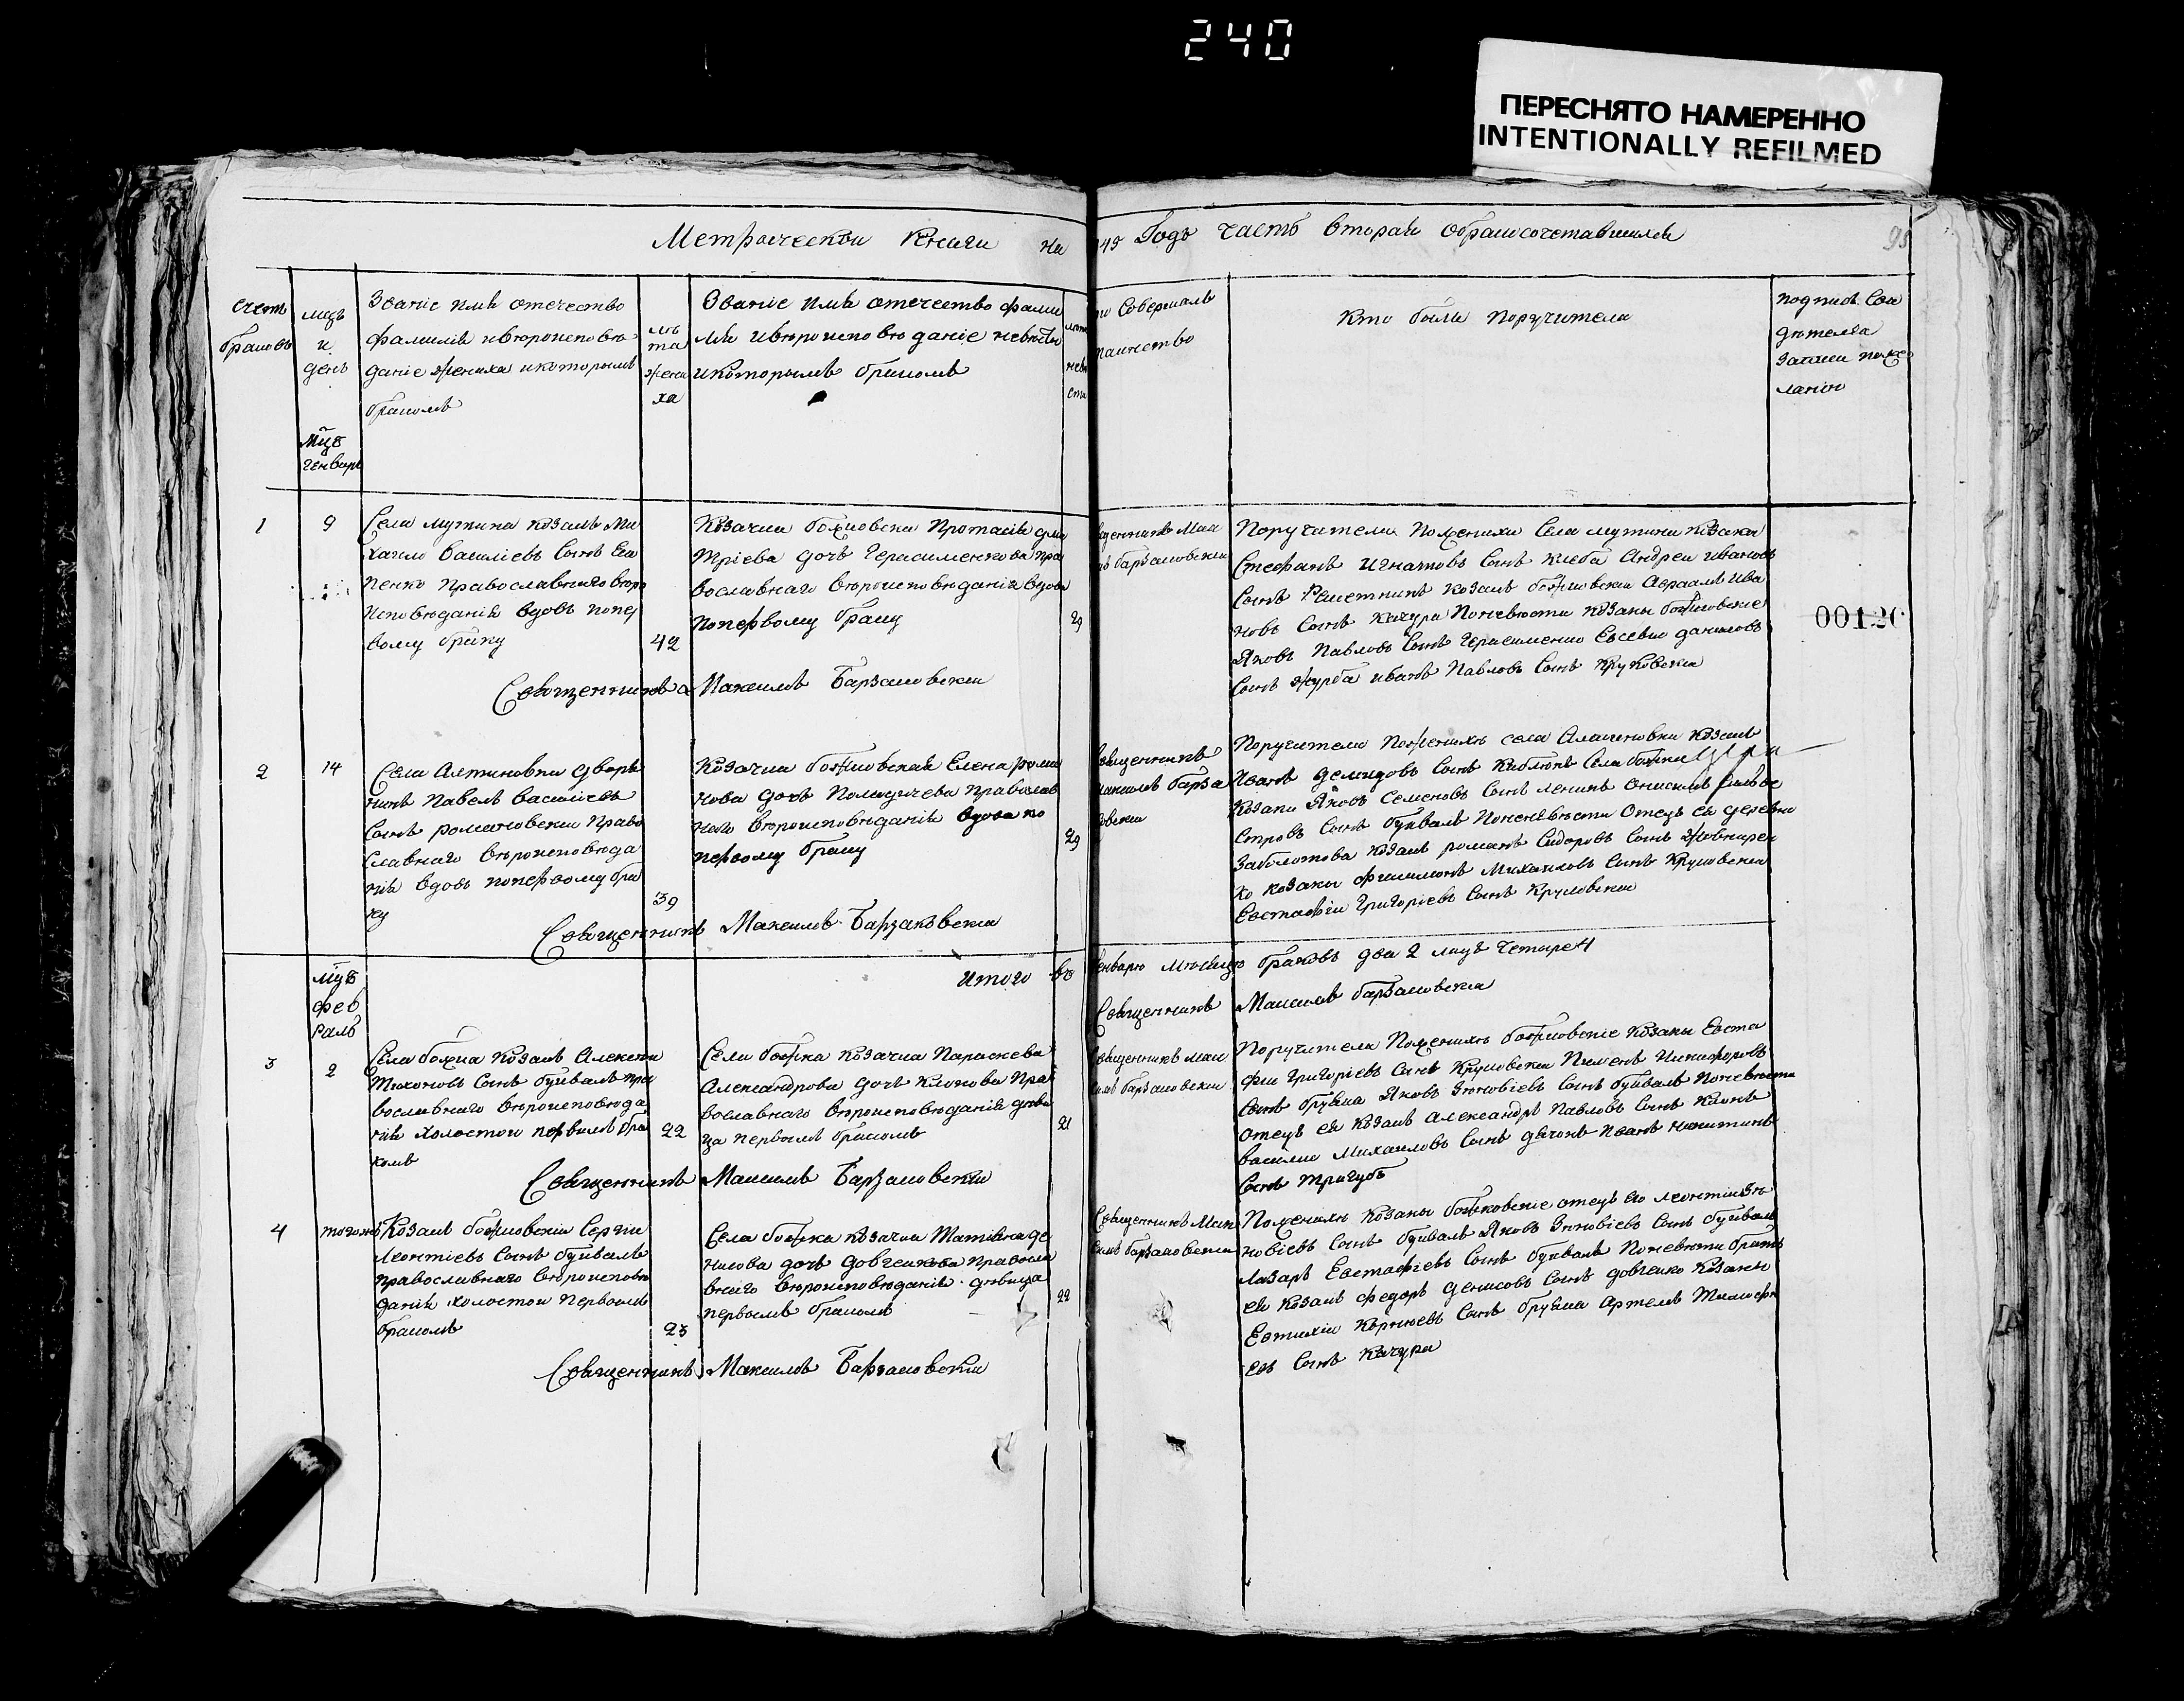 240
ПЕРЕСНЯТО НАМЕРЕННО
INTENTIONALLY REFILMED
Метрической Книги на
45 Годъ часть вторая
95
счетъ
браковъ
мцъ
и
день
Званіе имя отечество
фамилія и вѣроисповѣ
даніе жениха и которымъ
бракомъ
лѣ
та
жени
ха
Званіе имя отечество фами
лія и вѣроисповѣданіе невѣсты
и которымъ бракомъ
лѣта
невѣ
сты
то Совершалъ
таинство
Кто были поручители
Мцъ
генварь
1
9
Села Мутина козакъ Ми
хаило Василіевъ Сынъ
пенко Православнаго вѣро
исповѣданія вдовъ попер
вому браку
42
Козачка божковска дми
тріева дочь Герасименкова пра
вославнаго вѣроисповѣданія вдова
по первому браку
29
священникъ Мак
имъ Барзаковскій
Поручители По женихи Села Мутина козаки
Стефанъ Игнатовъ Сынъ Андрей Ивановъ
Сынъ Решетникъ козакъ божковскій Авраамъ Ива
новъ Сынъ Качура По невѣсти козаки божковскіе
Яковъ Павловъ Сынъ Герасименко Евсевій даниловъ
Сынъ журба иванъ Павловъ Сынъ Круковскій
00120
Священникъ Макимъ Барзаковскій
2
14
Села Алтиновки дворя
нинъ Павелъ Василіевъ
Сынъ романовскій Право
славнаго вѣроисповѣда
нія вдовъ по первому бра
ку
39
Козачка божковская Елена рома
нова дочь Православ
наго вѣроисповѣданія вдова по
первому браку
29
Священникъ
Макимъ Барза
ковскій
Поручители По женихѣ села козакъ
Иванъ демидовъ Сынъ Села божка
козаки Яковъ Семеновъ Сынъ Онисимъ Сильве
стровъ Сынъ буйвалъ По невѣсти Отецъ ея деревни
Заболотова козакъ романъ Сидоровъ Сынъ
ко козаки филимонъ Михаиловъ Сынъ Круковскій
Евстафій Григоріевъ Сынъ Круковскій
Священникъ Макимъ Барзаковскій
Итого въ
Генварѣ Мѣсяцѣ браковъ два 2 лицъ четыре 4
Священникъ Макимъ Барзаковскій
Мцъ
фев
раль
3
2
Села божка козакъ Алексѣй
Тихоновъ Сынъ буйвалъ пра
вославнаго вѣроисповѣда
нія холостой первымъ бра
комъ
22
Села божка козачка Параскева
Александрова дочь Клюкова Пра
вославнаго вѣроисповѣданія дѣви
ца первымъ бракомъ
21
Священникъ Мак
имъ Барзаковскій
Поручители По женихѣ божковскіе козаки Евста
фій Григоріевъ Сынъ Круковскій Пименъ Никифоровъ
Сынъ Яковъ Зиновіевъ Сынъ буйвалъ По невѣсти
отецъ ея козакъ Александръ Павловъ Сынъ
Василій Михаиловъ Сынъ Иванъ Никитинъ
Сынъ Тригубъ
Священникъ Макимъ Барзаковскій
4
тогожъ
Козакъ божковскій Сергій
Леонтіевъ Сынъ буйвалъ
православнаго вѣроисповѣ
данія холостой первымъ
бракомъ
23
Села божка козачка Татіяна де
нисова дочь довгенкова правосла
внаго вѣроисповѣданія дѣвица
первымъ бракомъ
22
Священникъ Мак
имъ Барзаковскій
По женихѣ козаки божковскіе отецъ его леонтій Зи
новіевъ Сынъ буйвалъ Яковъ Зиновіевъ Сынъ буйвалъ
Лазарь Евстафіевъ Сынъ буйвалъ По невѣсти братъ
ея козакъ федоръ денисовъ Сынъ довгенко козаки
Евтихій Корнѣевъ Сынъ Артемъ Тимофѣ
евъ Сынъ Качура
Священникъ Макимъ Барзаковскій